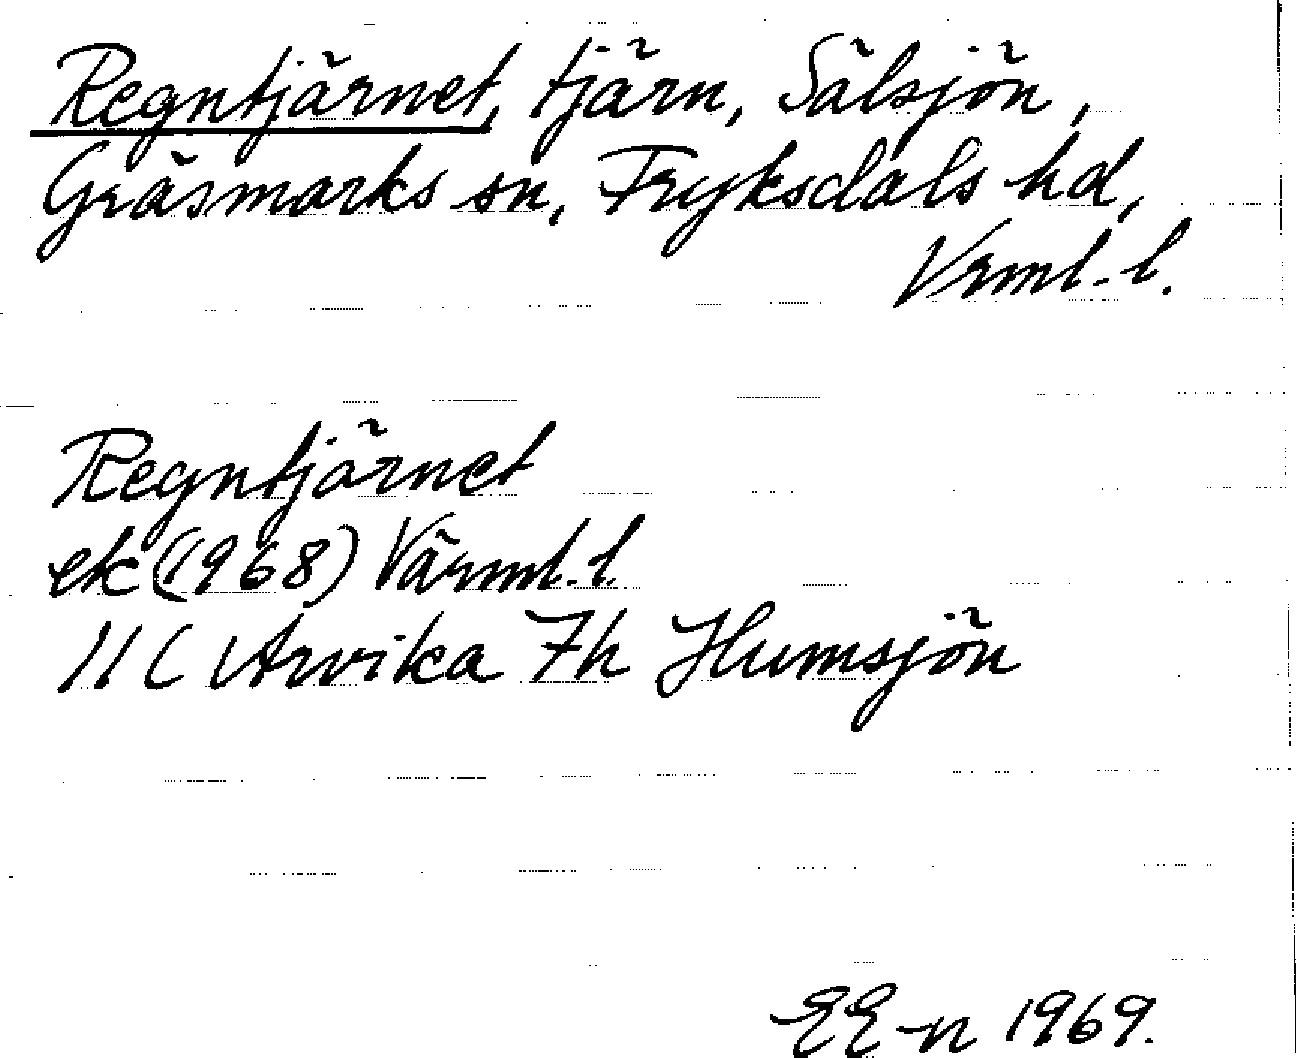 Regntjärnet, tjärn, Sälsjön,
Gräsmarks sn, Fryksdals hd,
Vrml. l.
Regntjärnet
ek (1968) Värml. l.
11 C Arvika 7h Humsjön
EE-n 1969.